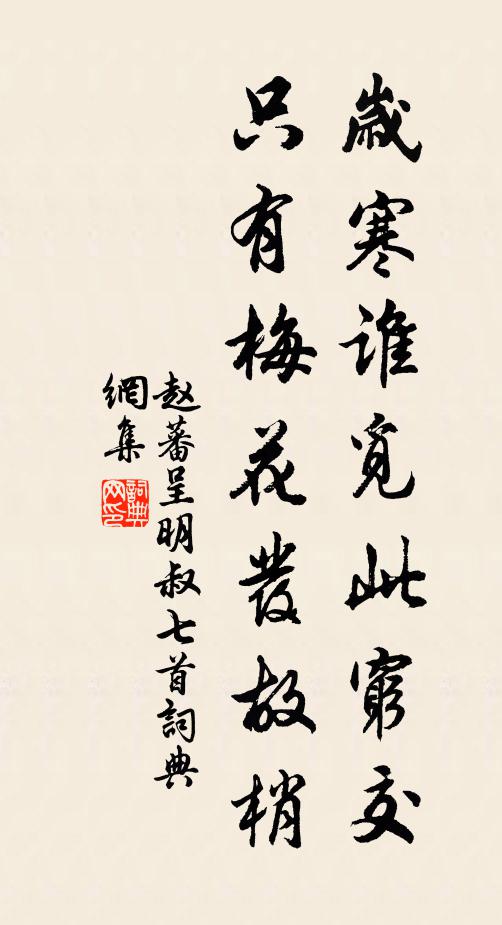 歲寒誰覓此窮交
只有梅花發故梢
赵蕃呈明叔七首詞典
網集
詞典网印